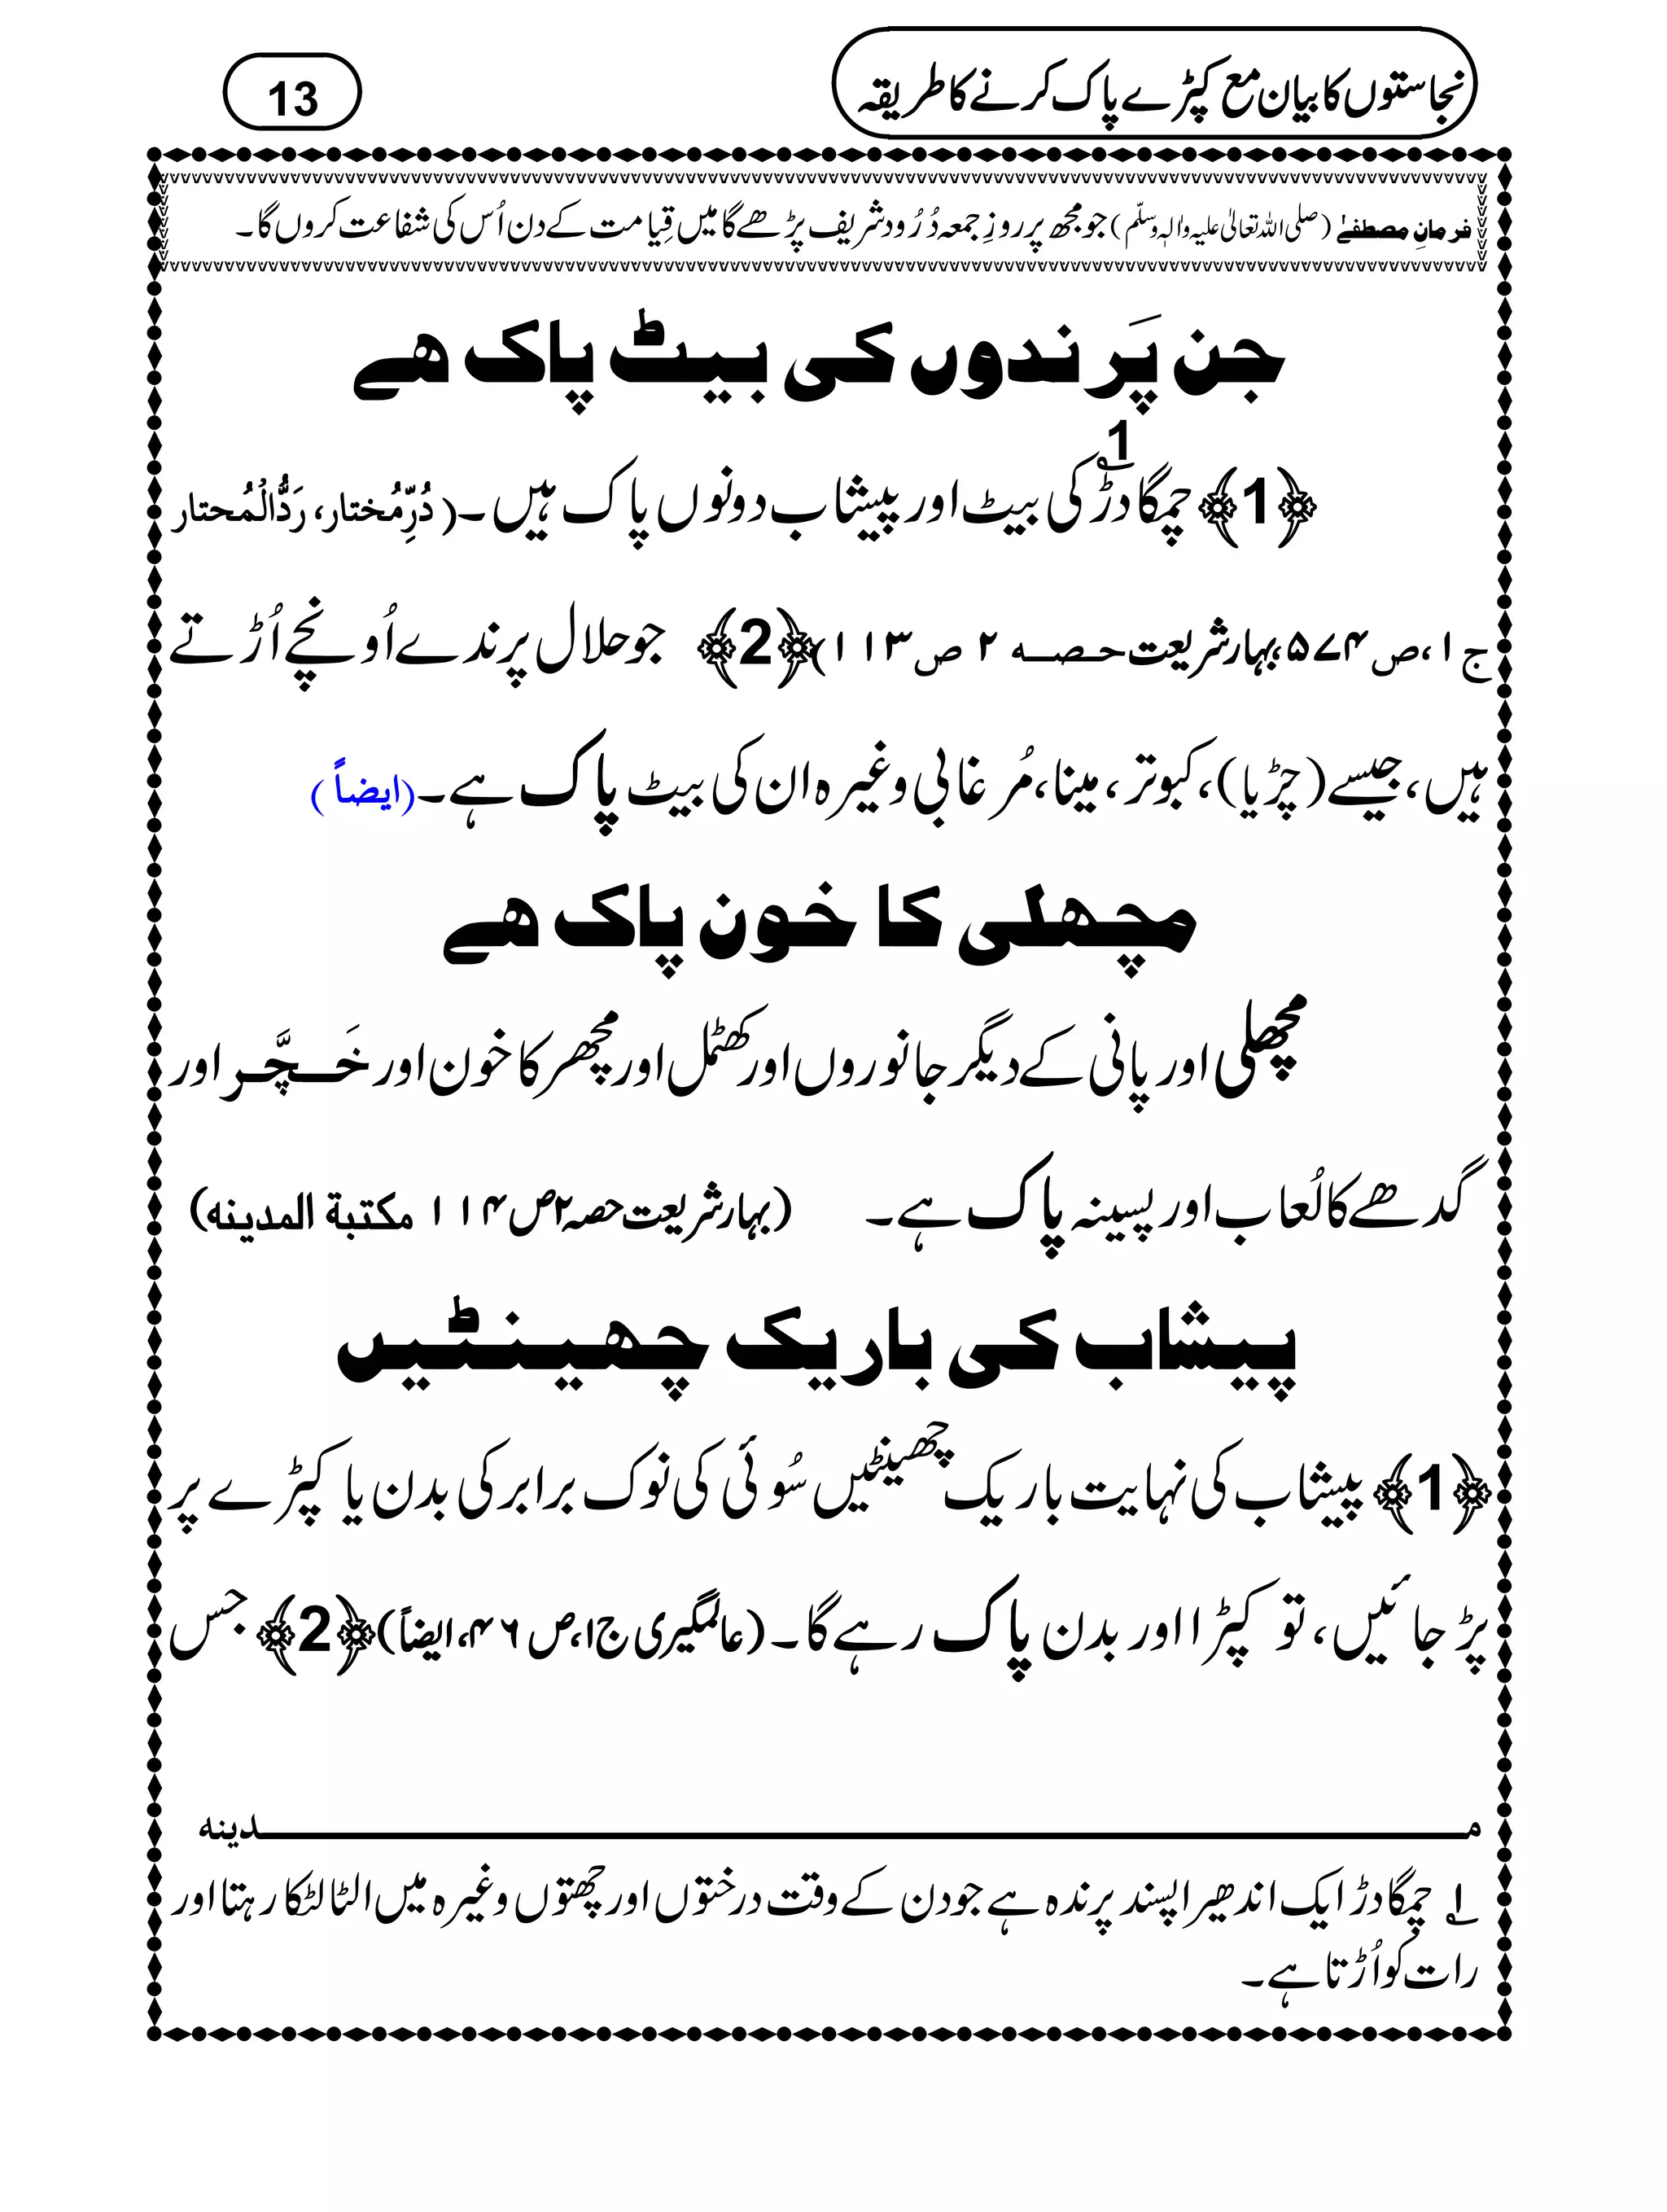 نجاستوں کا بیان مع کپڑے پاک کرنے کا طریقہ
13
فرمانِ مصطفےٰ (صلی اللہ تعالیٰ علیہ والہٖ وسلّم) جو مجھ پر روزِ جمعہ دُرُود شریف پڑھے گا میں قِیامت کے دن اُس کی شفاعت کروں گا۔
جن پَرندوں کی بیٹ پاک ھے
﴿1﴾ چمگادڑ1 کی بیٹ اور پیشاب دونوں پاک ہیں۔ (دُرِّمُختار، رَدُّالْمُحتار
ج۱، ص۵۷۴، بہارِ شریعت حصہ ۲ ص ۱۱۳) ﴿2﴾ جو حلال پرندے اُونچے اُڑتے
ہیں، جیسے (چڑیا)، کبوتر، مینا، مُرغابی وغیرہ ان کی بیٹ پاک ہے۔ (ایضاً)
مچھلی کا خون پاک ھے
مچھلی اور پانی کے دیگر جانوروں اور کھٹمل اور مچھر کا خون اور خَچَّر اور
گدھے کا لُعاب اور پسینہ پاک ہے۔ (بہارِ شریعت حصہ ۲ ص ۱۱۴ مکتبة المدینہ)
پیشاب کی باریک چھینٹیں
﴿1﴾ پیشاب کی نہایت باریک چھینٹیں سُوئی کی نوک برابر کی بدن یا کپڑے پر
پڑ جائیں، تو کپڑا اور بدن پاک رہے گا۔ (عالمگیری ج۱، ص ۴۶، ایضاً) ﴿2﴾ جس
مدینہ
۱؎ چمگادڑ ایک اندھیرا پسند پرندہ ہے جو دن کے وقت درختوں اور چھتوں وغیرہ میں الٹا لٹکا رہتا اور
رات کو اُڑتا ہے۔